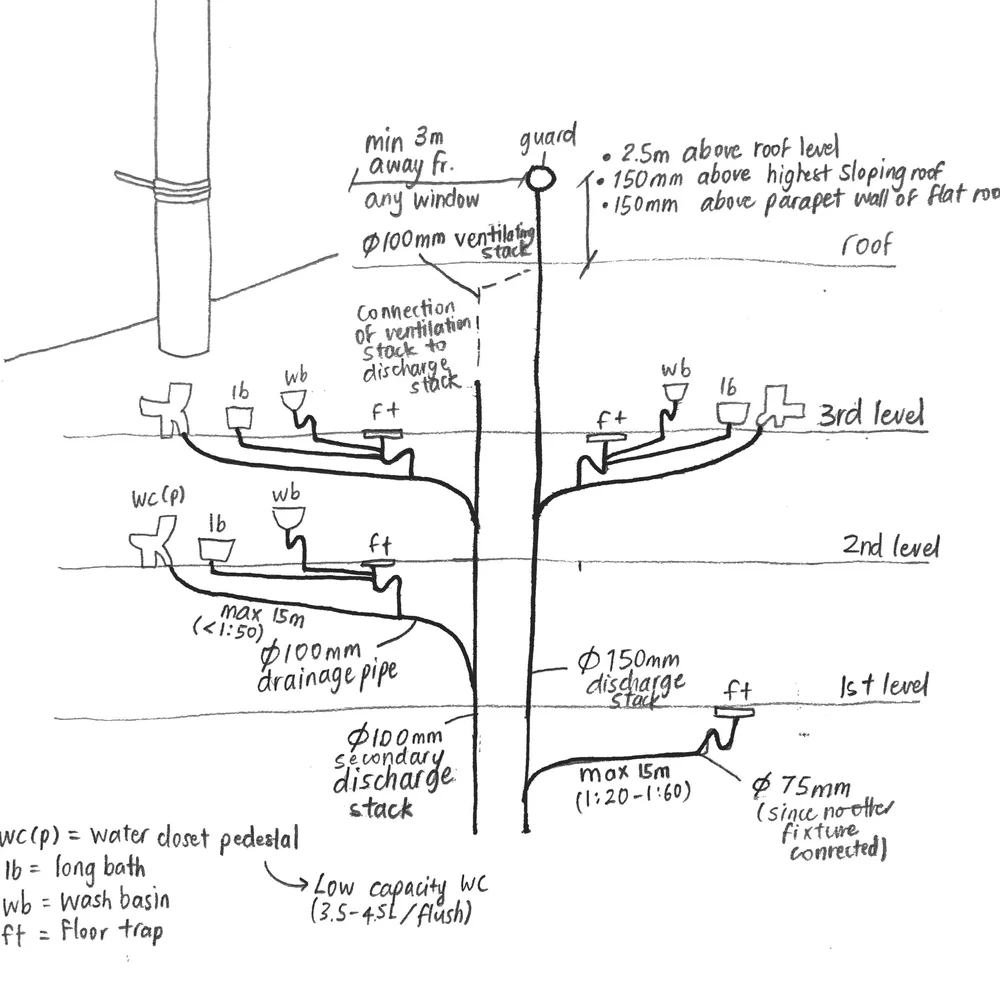 min 3m
away fr.
any window
guard
• 2.5m above roof level
• 150mm above highest sloping roof
• 150mm above parapet wall of flat roo
roof
φ100mm ventilating
stack
Connection
of ventilation
stack to
discharge
stack
lb
wb
ft
wb
lb
ft
3rd level
wc(p)
lb
wb
ft
2nd level
max 15m
(<1:50)
φ100mm
drainage pipe
φ150mm
discharge
stack
1st level
ft
φ100mm
secondary
discharge
stack
max 15m
(1:20-1:60)
φ 75mm
(since no other
fixture
connected)
wc(p) = water closet pedestal
lb = long bath
wb = wash basin
ft = floor trap
Low capacity WC
(3.5-4.5L/flush)